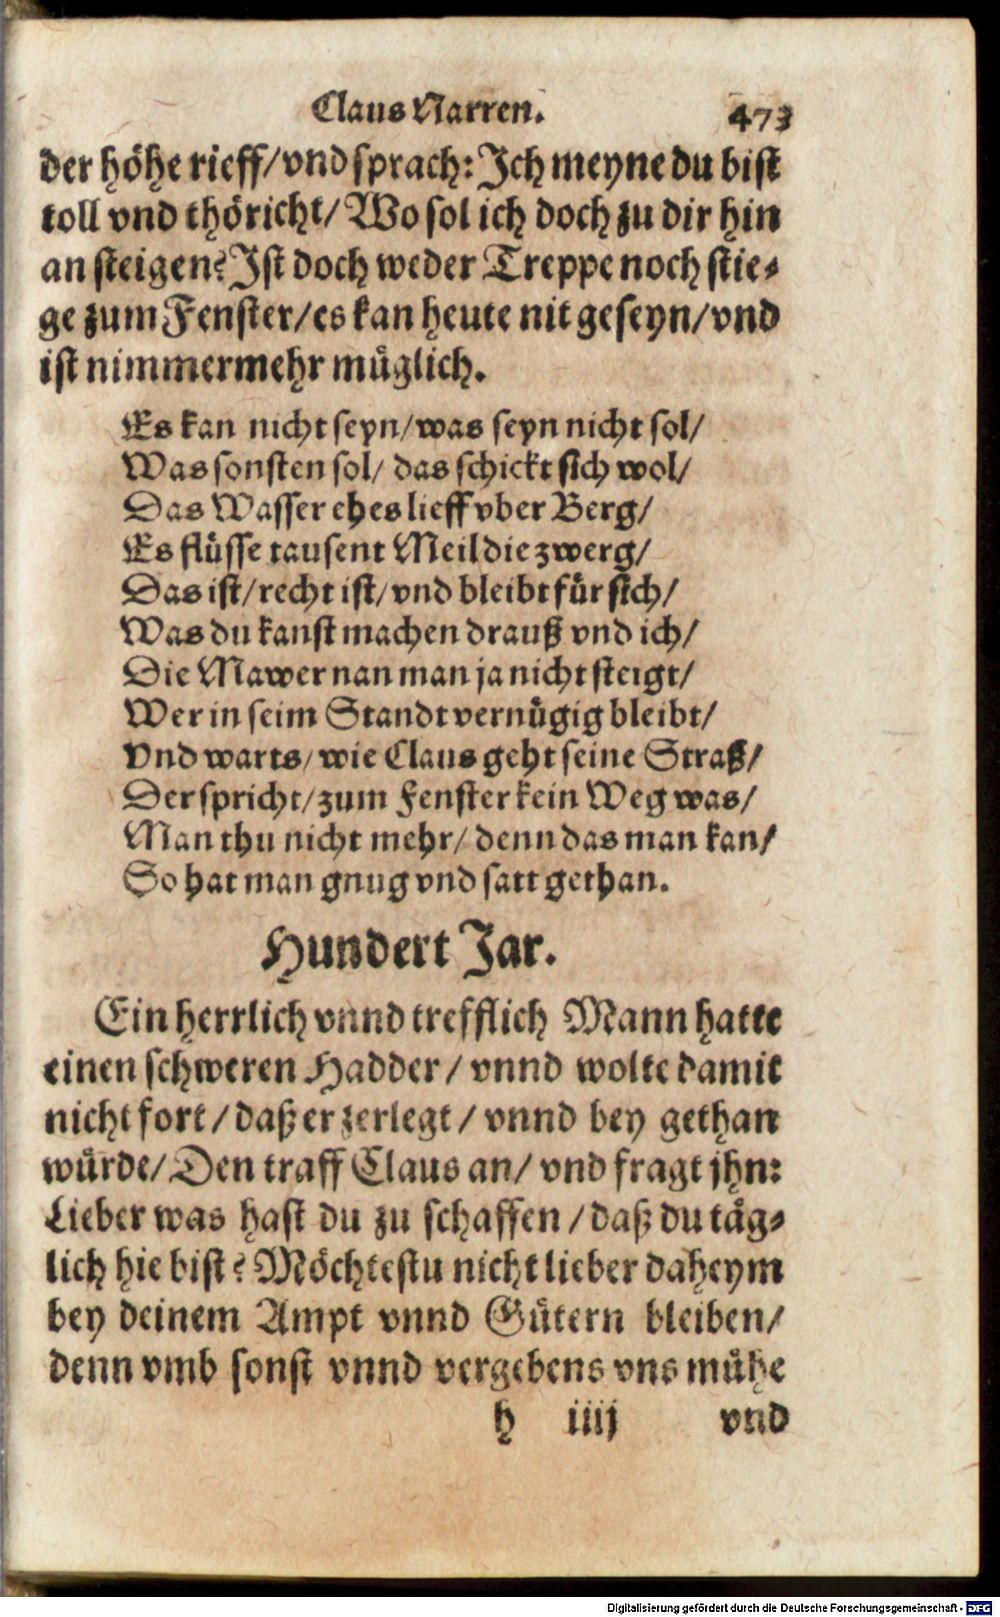 Claus Narren. 473
der höhe rieff/vnd sprach: Ich meyne du bist
toll vnd thöricht/Wo sol ich doch zu dir hin
an steigen? Ist doch weder Treppe noch stie-
ge zum Fenster/es kan heute nit geseyn/vnd
ist nimmermehr müglich.
Es kan nicht seyn/was seyn nicht sol/
Was sonsten sol/ das schickt sich wol/
Das Wasser ehes lieff vber Berg/
Es flüsse tausent Meil die zwerg/
Das ist/recht ist/vnd bleibt für sich/
Was du kanst machen drauß vnd ich/
Die Mawer nan man ja nicht steigt/
Wer in seim Standt vernügig bleibt/
Vnd warts/wie Claus geht seine Straß/
Der spricht/zum Fenster kein Weg was/
Man thu nicht mehr/ denn das man kan/
So hat man gnug vnd satt gethan.
Hundert Jar.
Ein herrlich vnnd trefflich Mann hatte
einen schweren Hadder/ vnnd wolte damit
nicht fort/daß er zerlegt/ vnnd bey gethan
würde/Den traff Claus an/ vnd fragt jhn:
Lieber was hast du zu schaffen/daß du täg-
lich hie bist? Möchtestu nicht lieber daheym
bey deinem Ampt vnnd Gütern bleiben/
denn vmb sonst vnnd vergebens vns mühe
h iiij vnd
Digitalisierung gefördert durch die Deutsche Forschungsgemeinschaft - DFG